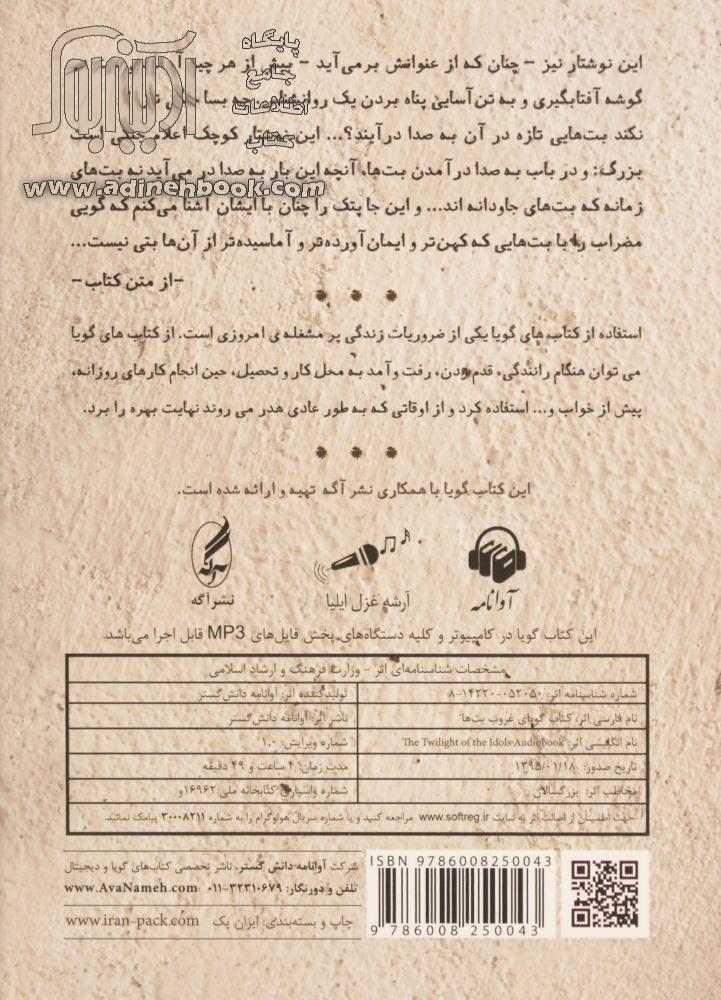 پایگاه
جامع
اطلاعات
کتاب
آدینه بوک
www.adinehbook.com
این نوشتار نیز – چنان که از عنوانش برمی‌آید – بیش از هر چیز
گوشه آفتابگیری و به تن‌آسایی پناه بردن یک روانشناس
نکند بت‌هایی تازه در آن به صدا درآیند؟... این نوشتار کوچک اعلام جنگی است
بزرگ: و در باب به صدا درآمدن بت‌ها، آنچه این بار به صدا در می‌آید نه بت‌های
زمانه که بت‌های جاودانه اند... و این جا پتک را چنان با ایشان آشنا می‌کنم که گویی
مضراب را با بت‌هایی که کهن‌تر و ایمان‌آورده‌تر و آماسیده‌تر از آن‌ها بتی نیست...
–از متن کتاب–
استفاده از کتاب های گویا یکی از ضروریات زندگی پر مشغله‌ی امروزی است. از کتاب های گویا
می توان هنگام رانندگی، قدم زدن، رفت و آمد به محل کار و تحصیل، حین انجام کارهای روزانه،
پیش از خواب و... استفاده کرد و از اوقاتی که به طور عادی هدر می روند نهایت بهره را برد.
این کتاب گویا با همکاری نشر آگه تهیه و ارائه شده است.
آوانامه
آرشه غزل ایلیا
نشر آگه
این کتاب گویا در کامپیوتر و کلیه دستگاه‌های پخش فایل‌های MP3 قابل اجرا می‌باشد.
مشخصات شناسنامه‌ای اثر – وزارت فرهنگ و ارشاد اسلامی
شماره شناسنامه اثر: ۸-۱۴۲۲۰-۰۵۲۰۵۰
تولیدکننده اثر: آوانامه دانش‌گستر
نام فارسی اثر: کتاب گویای غروب بت‌ها
ناشر اثر: آوانامه دانش‌گستر
نام انگلیسی اثر: The Twilight of the Idols-Audiobook
شماره ویرایش: ۱.۰
تاریخ صدور: ۱۳۹۵/۰۱/۱۸
مدت زمان: ۴ ساعت و ۴۹ دقیقه
مخاطب اثر: بزرگسالان
شماره واسپاری کتابخانه ملی: ۱۶۹۶۲و
جهت اطمینان از اصالت اثر به سایت www.softreg.ir مراجعه کنید و یا شماره سریال هولوگرام را به شماره ۳۰۰۰۸۲۱۱ پیامک نمائید.
شرکت آوانامه دانش گستر، ناشر تخصصی کتاب‌های گویا و دیجیتال
تلفن و دورنگار: ۳۲۳۱۰۶۷۹-۰۱۱ www.AvaNameh.com
چاپ و بسته‌بندی: ایران پک www.iran-pack.com
ISBN 9786008250043
9 786008 250043